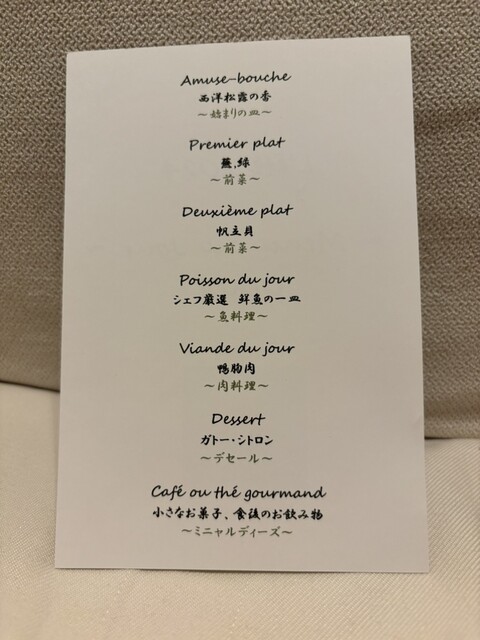 Amuse-bouche
西洋松露の香
～始まりの皿～
Premier plat
蕪、緑
～前菜～
Deuxième plat
帆立貝
～前菜～
Poisson du jour
シェフ厳選 鮮魚の一皿
～魚料理～
Viande du jour
鴨胸肉
～肉料理～
Dessert
ガトー・シトロン
～デセール～
Café ou thé gourmand
小さなお菓子、食後のお飲み物
～ミニャルディーズ～